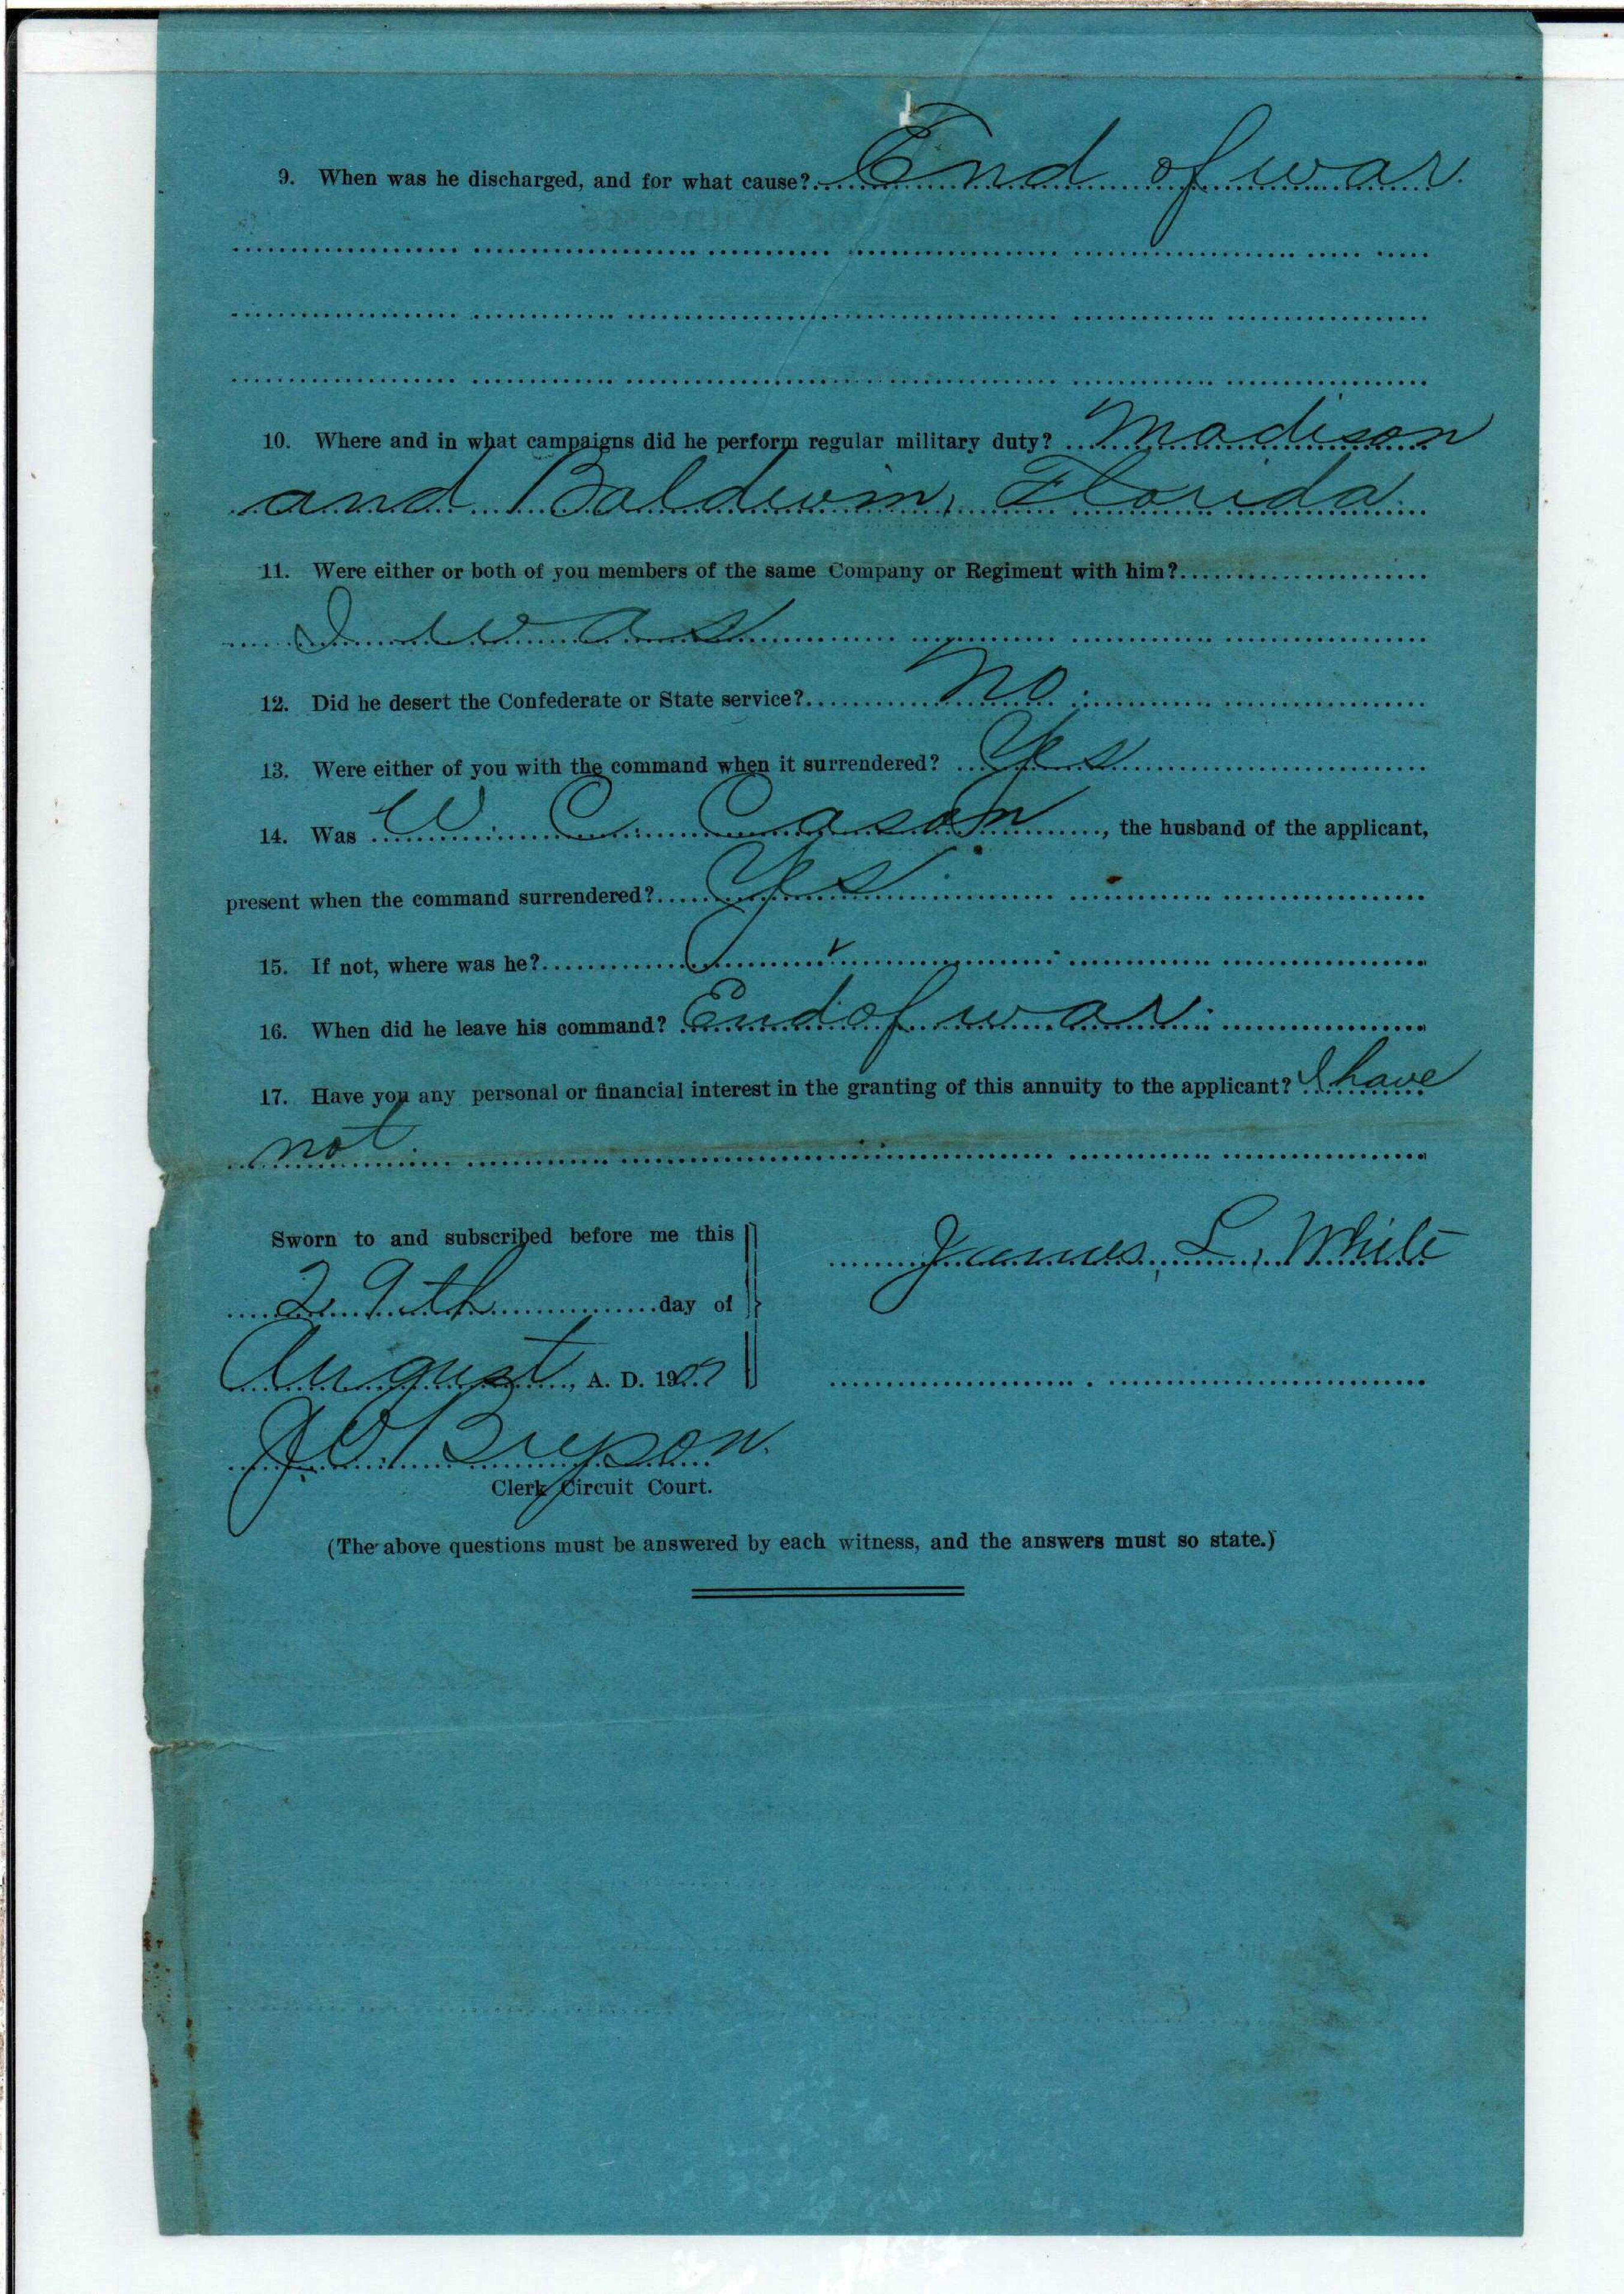 9. When was he discharged, and for what cause? End of war.
10. Where and in what campaigns did he perform regular military duty? Madison
and Baldwin, Florida.
11. Were either or both of you members of the same Company or Regiment with him?
I was
12. Did he desert the Confederate or State service? No.
13. Were either of you with the command when it surrendered? Yes
14. Was W. C. Cason, the husband of the applicant,
present when the command surrendered? Yes
15. If not, where was he?
16. When did he leave his command? End of war.
17. Have you any personal or financial interest in the granting of this annuity to the applicant? I have
not.
Sworn to and subscribed before me this
James, L, White
29th day of
August, A. D. 1907
Clerk Circuit Court.
(The above questions must be answered by each witness, and the answers must so state.)